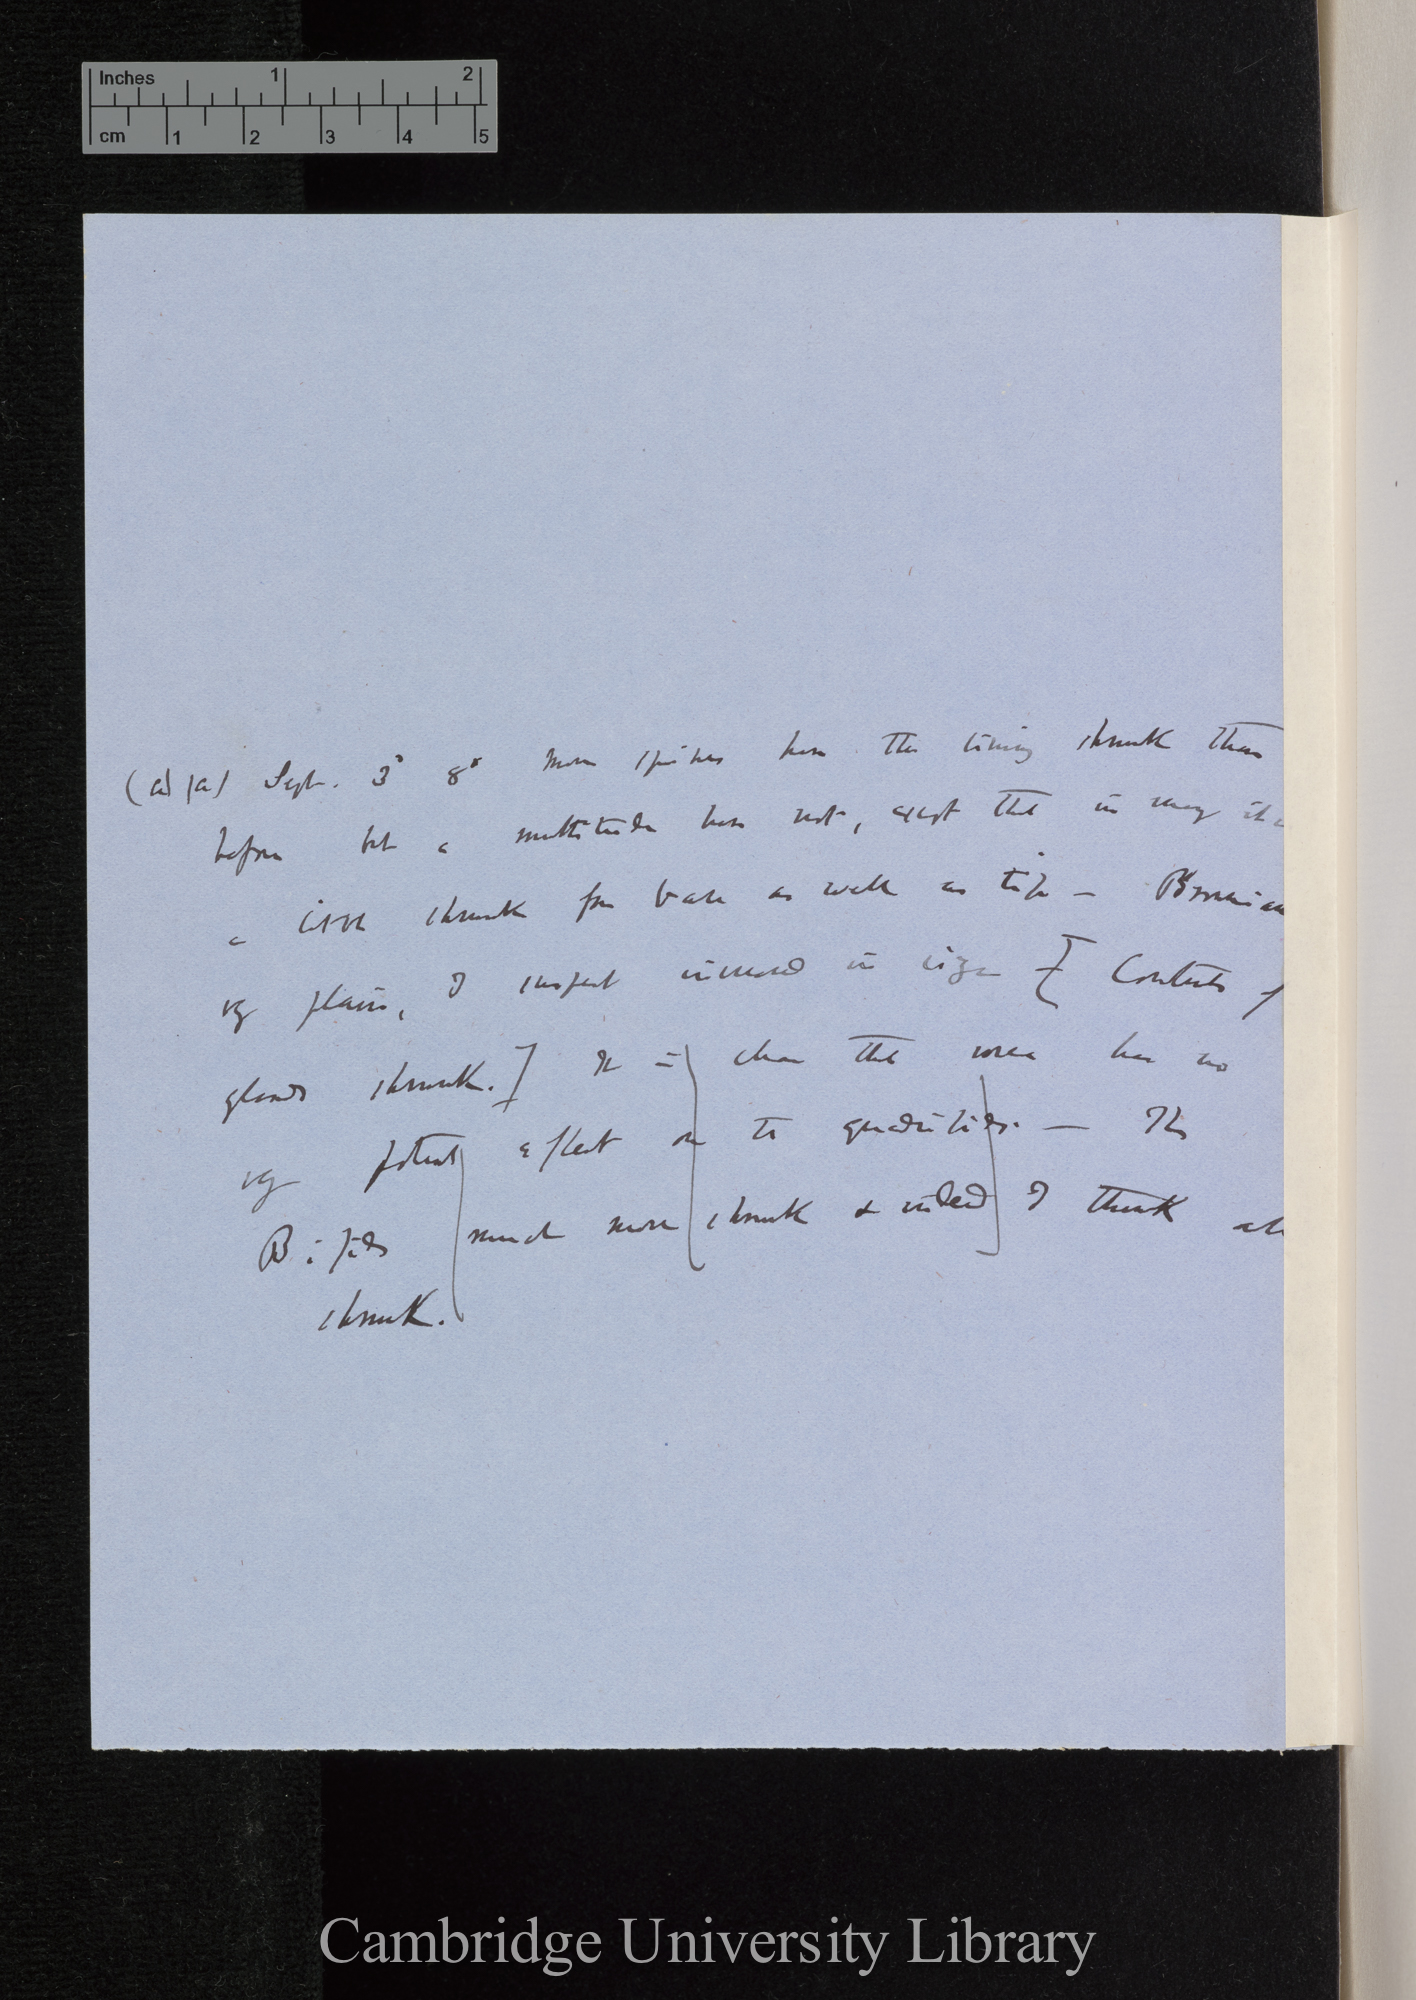 Inches 1 2
cm 1 2 3 4 5
(a) (a) Sept. 3d 8° more spines have the lining shrunk than
before but a multitude have not, except that in many it is
a little shrunk from base as well as tip — Brownian
vy plain, I suspect increased in size [Contents of
glands shrunk.] It is clear that urea has no
vy potent effect on the quadrifids. — The
Bifids much more shrunk & indeed I think all
shrunk.
Cambridge University Library